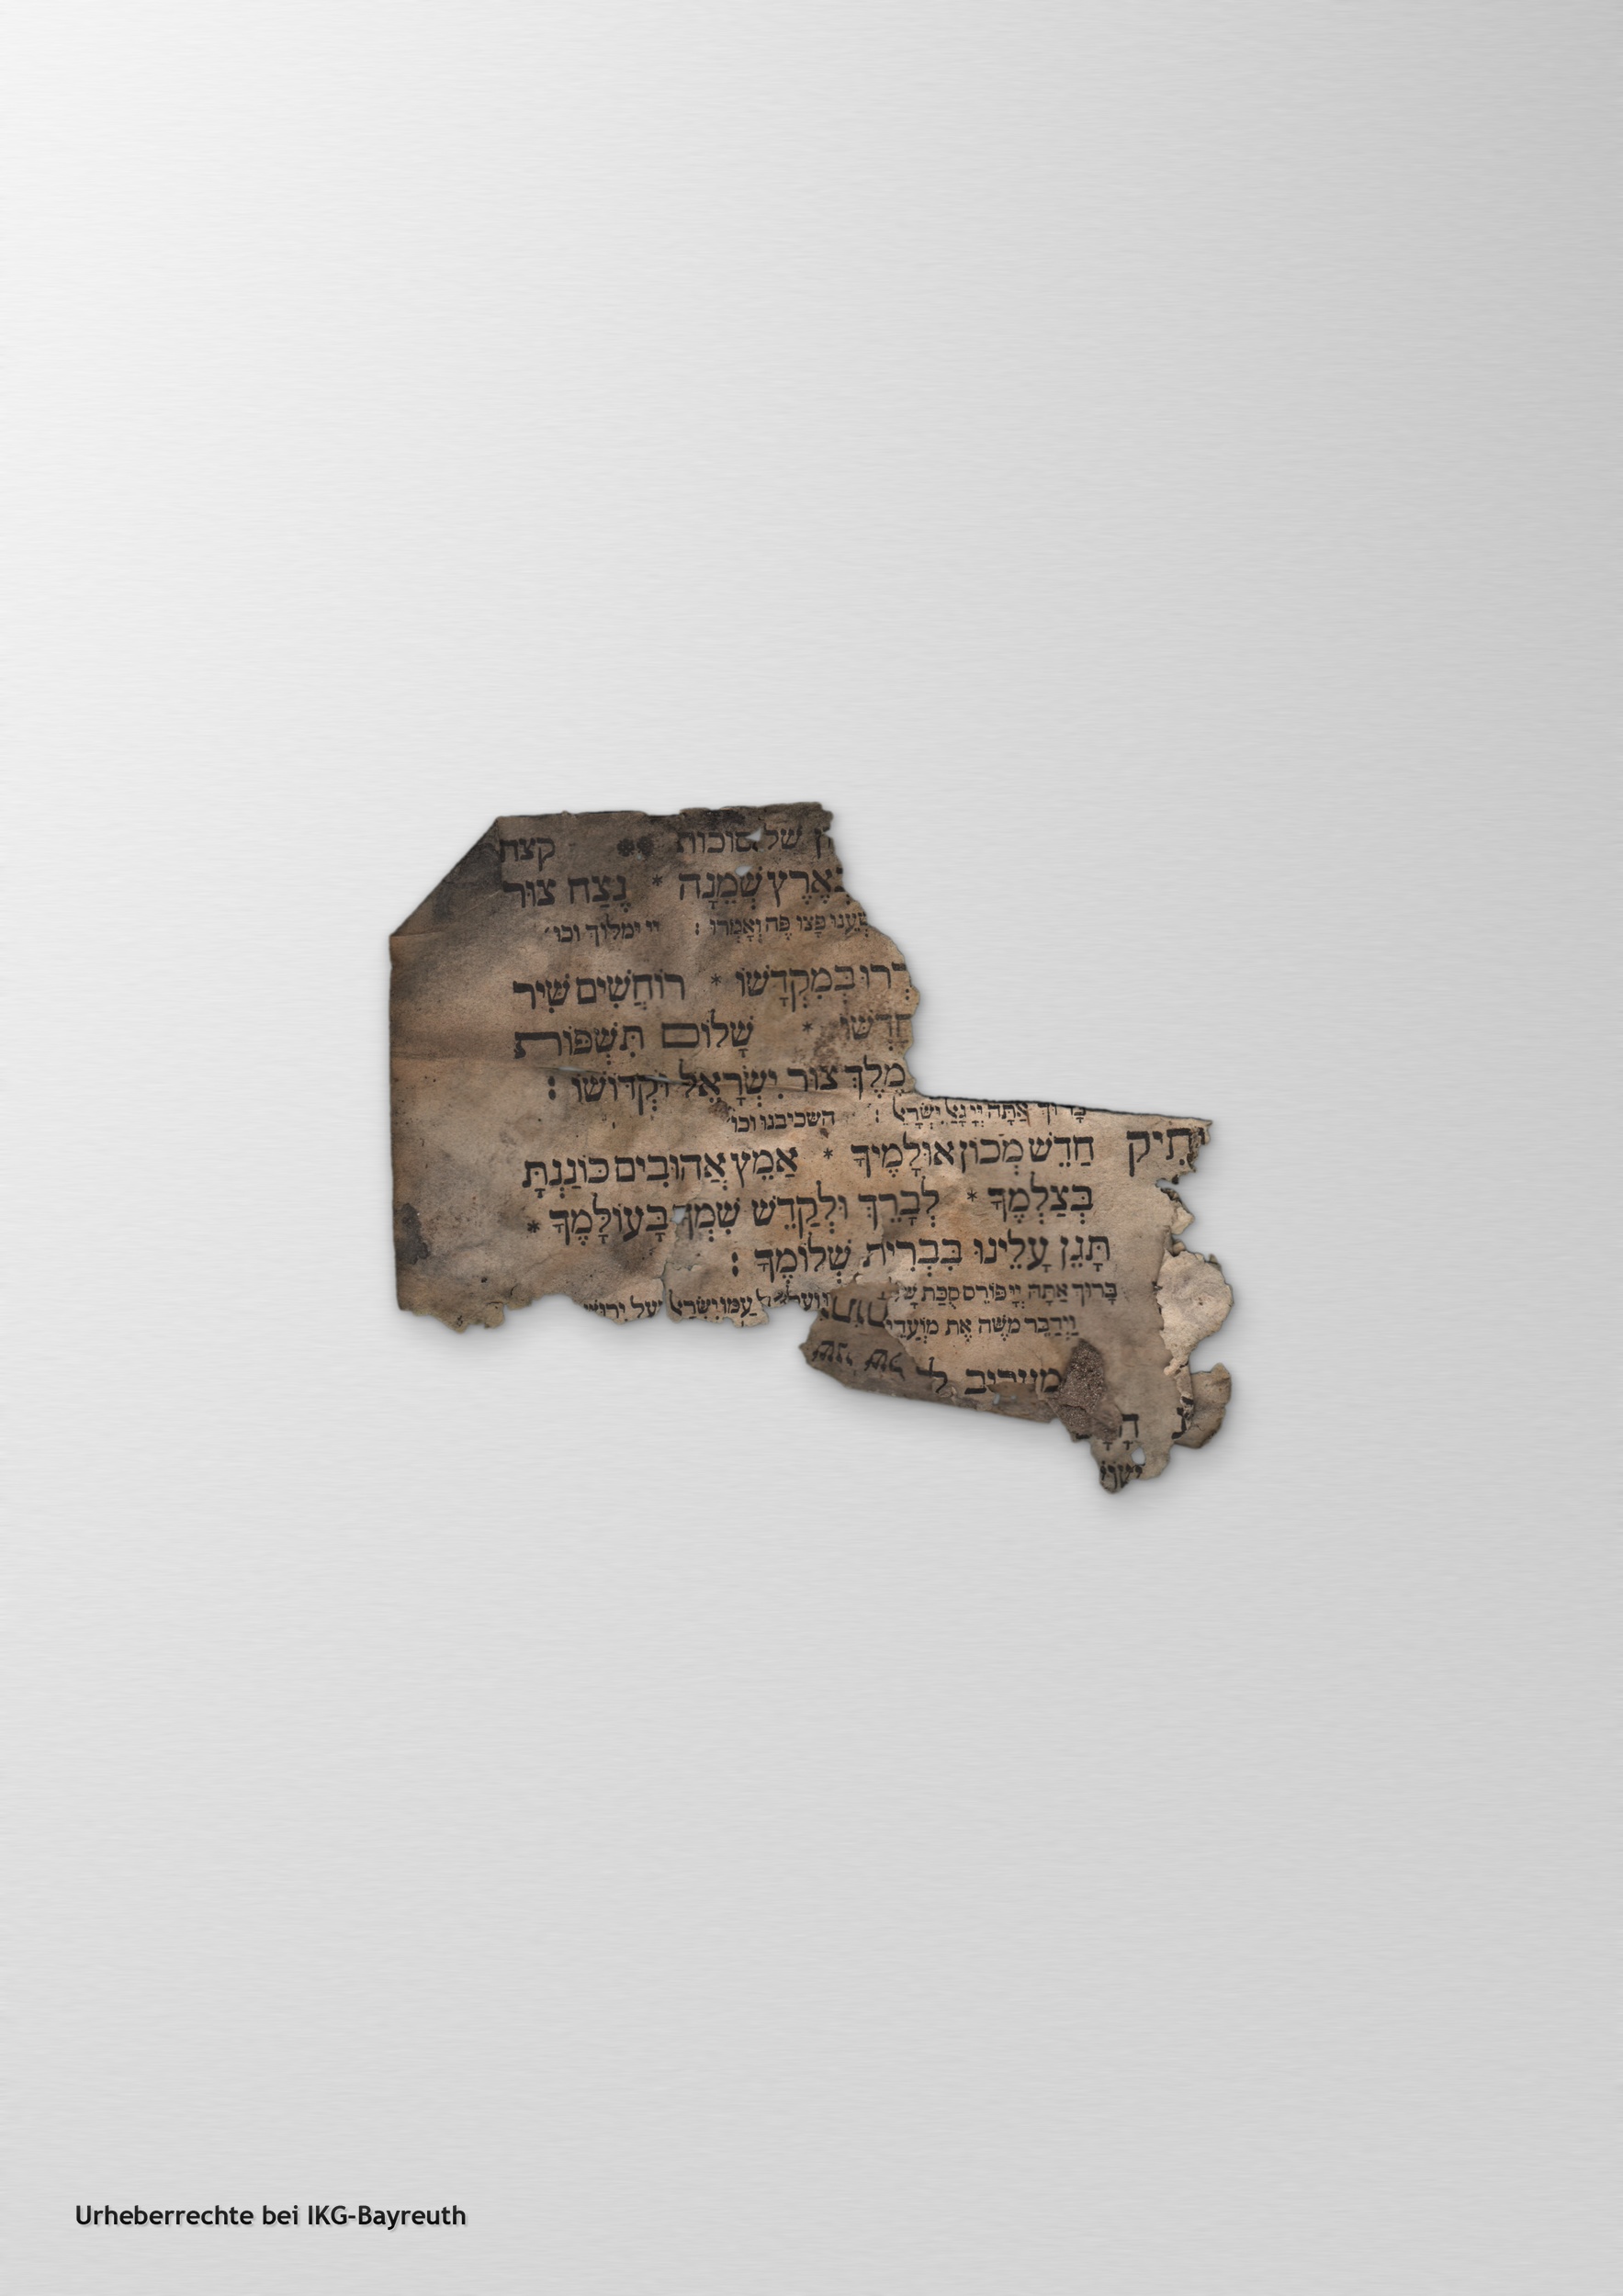 של סוכות קצת
בְּאֶרֶץ שְׁמֵנָה * נֶצַח צוּר
פָּצוּ פֶּה וְאָמְרוּ : יי ימלוך וכו׳
בְּמִקְדָשׁוֹ * רוֹחֲשִׁים שִׁיר
* שָׁלוֹם תִּשְׁפּוֹת
מֶלֶךְ צוּר יִשְׂרָאֵל וּקְדוֹשׁוֹ :
בָּרוּךְ אַתָּה יְיָ גָּאַל יִשְׂרָאֵל : השכיבנו וכו׳
חַדֵשׁ מְכוֹן אוּלָמֶיךָ * אַמֵץ אֲהוּבִים כּוֹנַנְתָּ
בְּצַלְמֶךָ * לְבָרֵךְ וּלְקַדֵשׁ שִׁמְךָ בָּעוֹלָמֶךָ *
תָּגֵן עָלֵינוּ בִּבְרִית שְׁלוֹמֶךָ :
בָּרוּךְ אַתָּה יְיָ פּוֹרֵס סֻכַּת עַמּוֹ יִשְׂרָאֵל
וַיְדַבֵּר משֶׁה אֶת מוֹעֲדֵי
מעריב ל
Urheberrechte bei IKG-Bayreuth